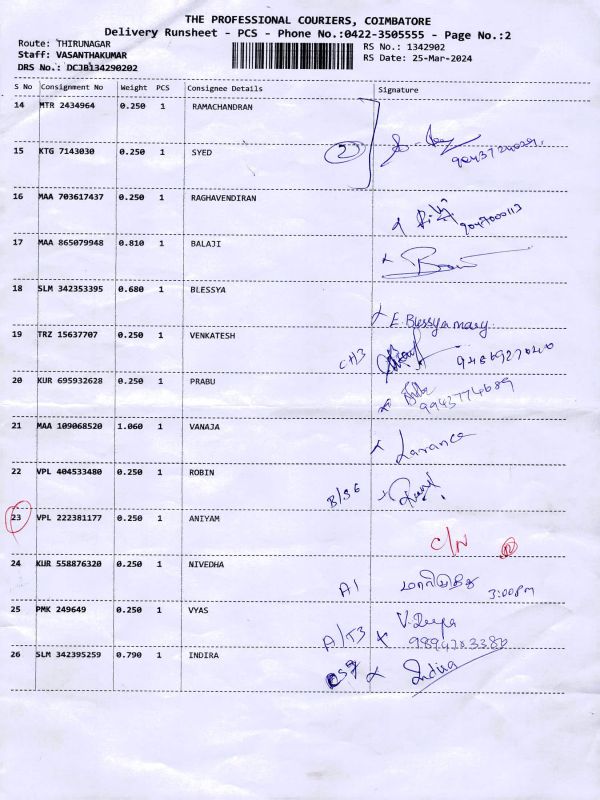 THE PROFESSIONAL COURIERS, COIMBATORE
Delivery Runsheet - PCS - Phone No.:0422-3505555 - Page No.:2
Route: THIRUNAGAR
RS No.: 1342902
Staff: VASANTHAKUMAR
RS Date: 25-Mar-2024
DRS No.: DCJB134290202
S No Consignment No Weight PCS Consignee Details Signature
14 MTR 2434964 0.250 1 RAMACHANDRAN
15 KTG 7143030 0.250 1 SYED 2
16 MAA 703617437 0.250 1 RAGHAVENDIRAN
17 MAA 865079948 0.810 1 BALAJI
18 SLM 342353395 0.680 1 BLESSYA
E. Blessya mary
19 TRZ 15637707 0.250 1 VENKATESH
20 KUR 695932628 0.250 1 PRABU
9943774689
21 MAA 109068520 1.060 1 VANAJA
22 VPL 404533480 0.250 1 ROBIN
23 VPL 222381177 0.250 1 ANIYAM
C/N
24 KUR 558876320 0.250 1 NIVEDHA
A1 3:00pm
25 PMK 249649 0.250 1 VYAS
V. Deepa
A/T3
26 SLM 342395259 0.790 1 INDIRA
Indira